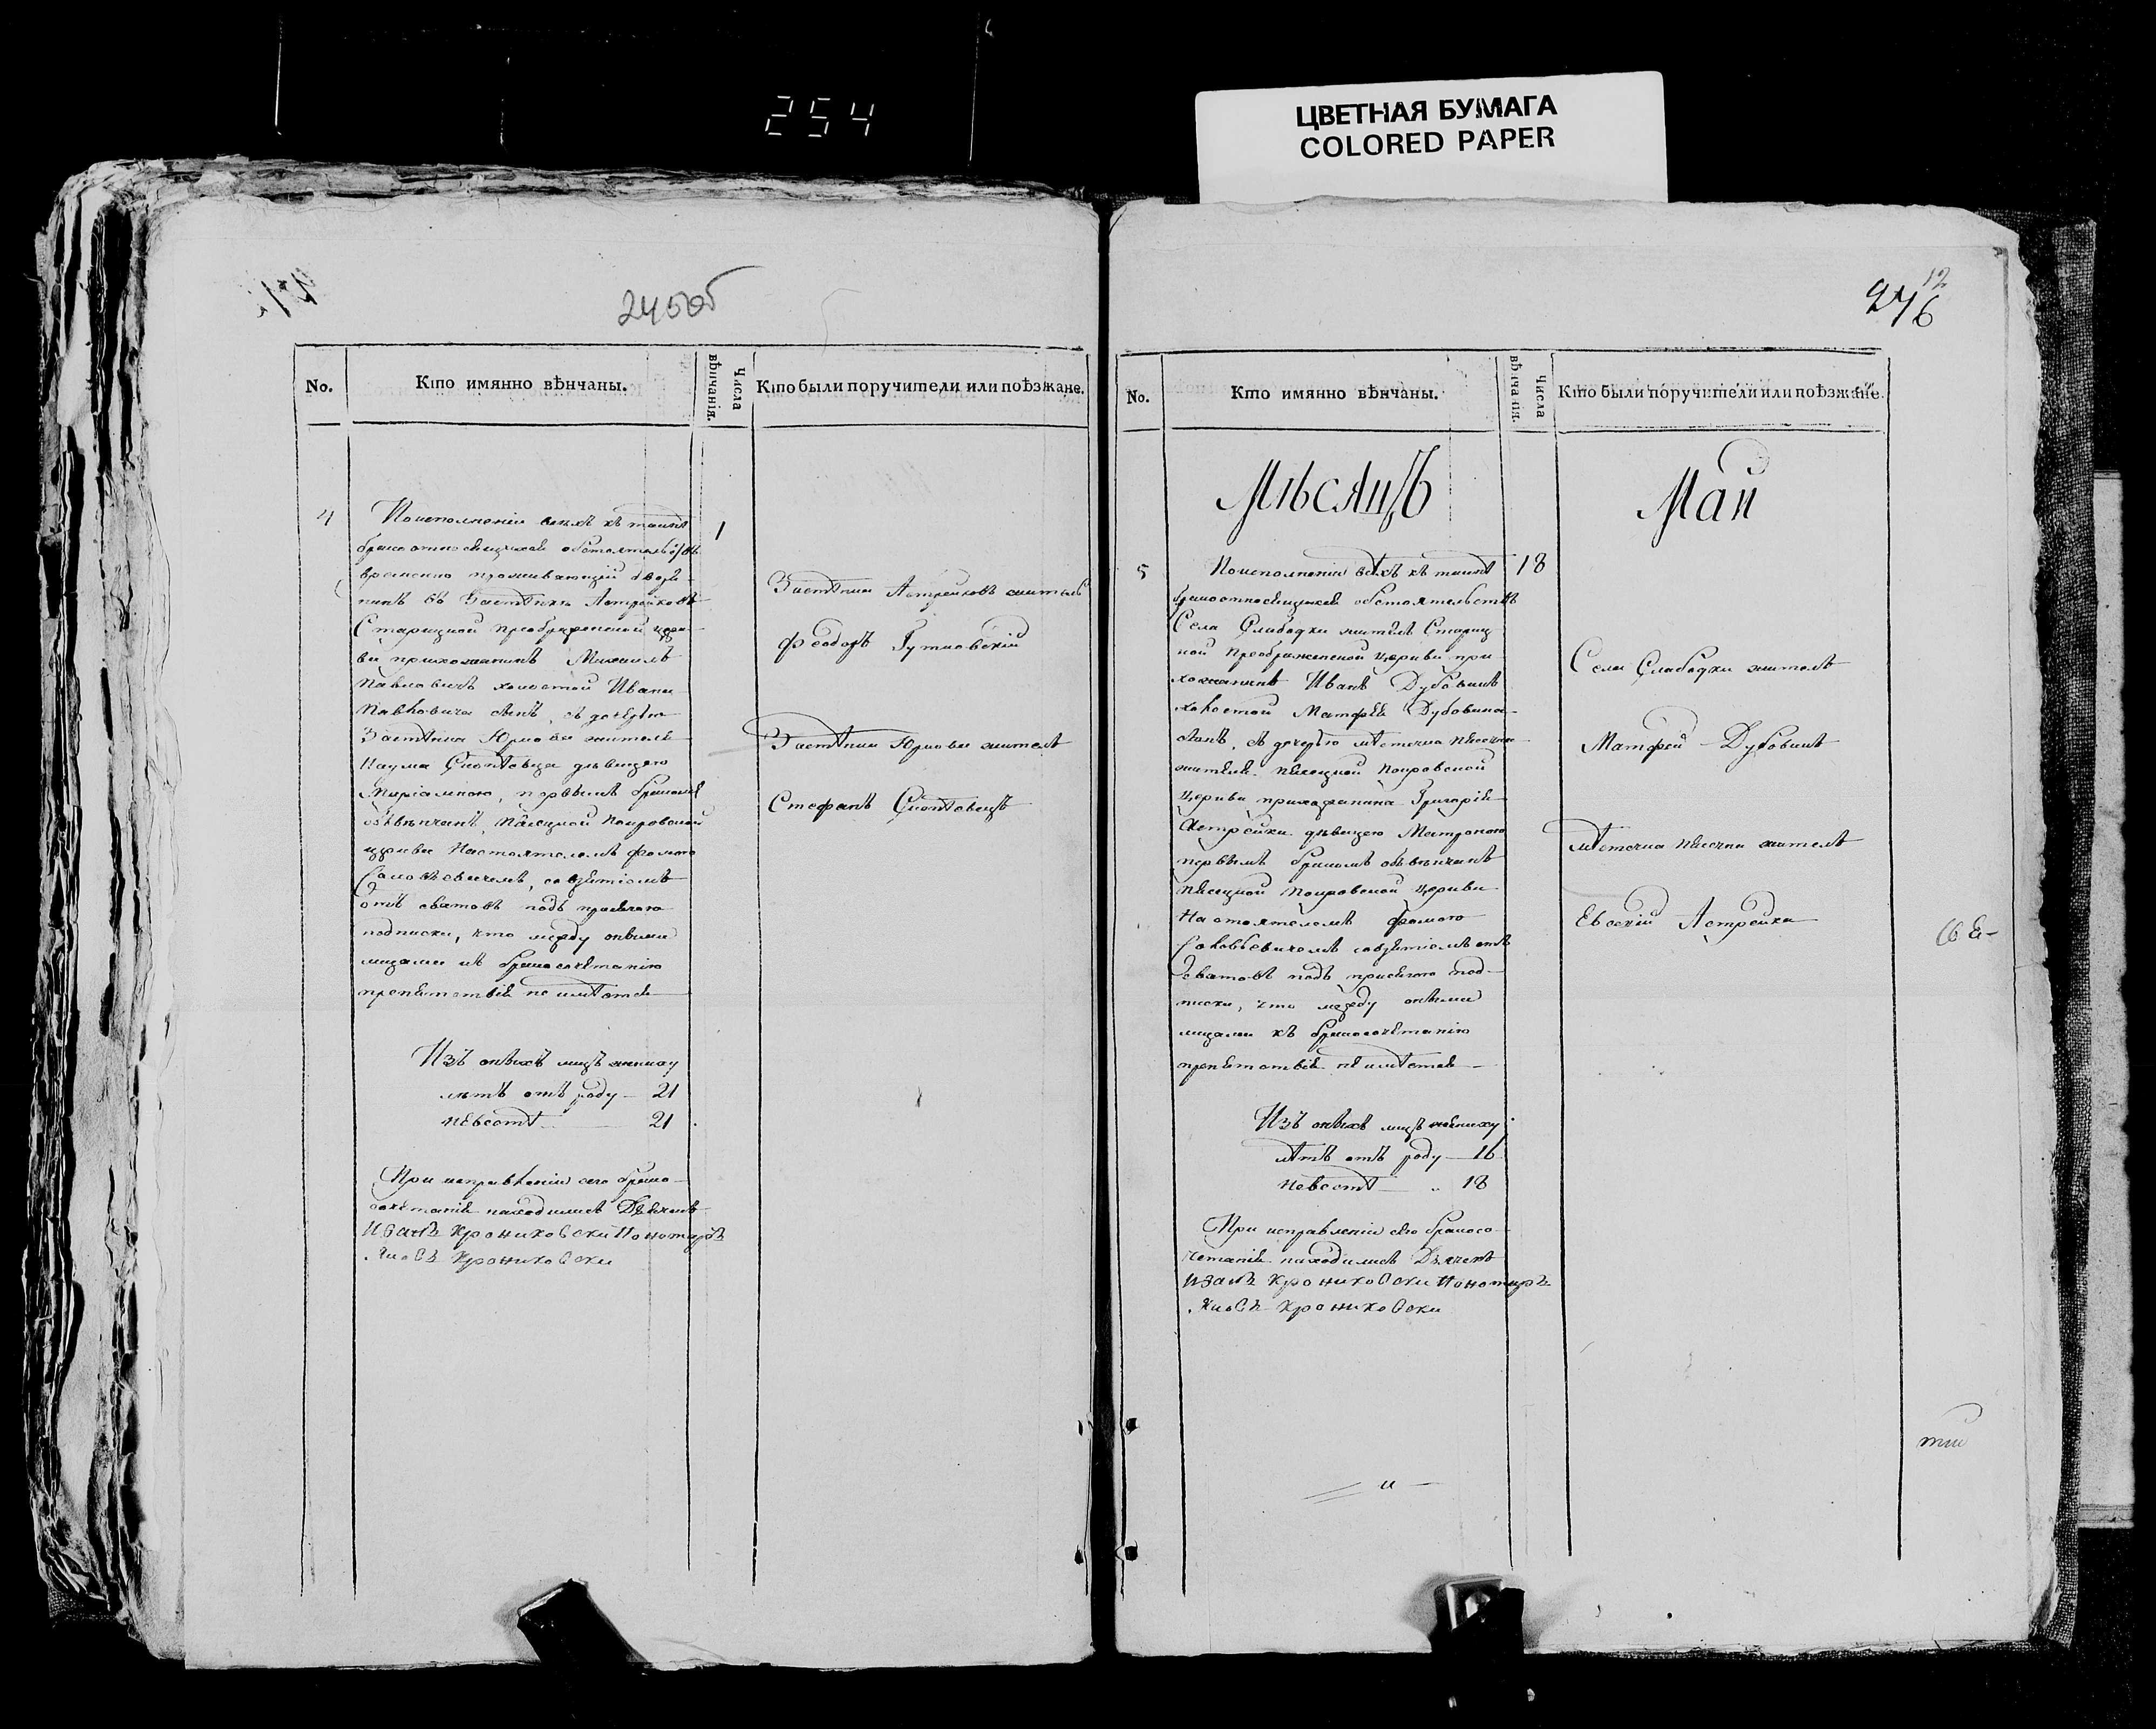 254
ЦВЕТНАЯ БУМАГА
COLORED PAPER
245об
No.
Кто имянно вѣнчаны.
Числа вѣнчанія.
Кто были поручители или поѣзжане.
4
1
По исполненіи всѣхъ къ таинѣ
брака относящихся обстоятельствъ
временно проживающій дворя-
нинъ въ Застѣнкѣ Астрейковѣ
Старицкой Преображенской церк-
ви прихожанинъ Михаилъ
Павловичъ холостой Ивана
Павловича сынъ, съ дочерью
Застѣнка Юрковы жителя
Наума дѣвицею
Маріамною, первымъ бракомъ
обвѣнчанъ, Пѣсецкой Покровской
церкви Настоятелемъ Фомою
Соловьевичемъ, со взятіемъ
отъ сватовъ подъ присягою
подписки, что между оными
лицами къ бракосочетанію
препятствія не имѣется
Изъ оныхъ лицъ жениху
лѣтъ отъ роду — 21
невестѣ 21
При исправленіи сего брако-
сочетанія находились Дьячекъ
Иванъ Крониковски Пономарь
Яковъ Крониковски
Застѣнка Астрейковъ житель
Феодоръ Гутковскій
Застѣнка Юрковы житель
Стефанъ
12
246
No.
Кто имянно вѣнчаны.
Числа вѣнчанія.
Кто были поручители или поѣзжане.
Мѣсяцъ Май
5
18
По исполненіи всѣхъ къ таинѣ
брака относящихся обстоятельствъ
Села Слабодки житель Стариц-
кой Преображенской церкви при-
хожанинъ Иванъ Дубовикъ
холостой Матфея Дубовика
сынъ, съ дочерью мѣстечка Пѣсечна
жителя Пѣсецкой Покровской
церкви прихожанина Григорія
Астрейки дѣвицею Матроною
первымъ бракомъ обвѣнчанъ
Пѣсецкой Покровской церкви
Настоятелемъ Фомою
Соловьевичемъ со взятіемъ отъ
сватовъ подъ присягою под-
писки, что между оными
лицами къ бракосочетанію
препятствія не имѣется —
Изъ оныхъ лицъ жениху
лѣтъ отъ роду — 16
невестѣ — 18
При исправленіи сего бракосо-
четанія находились Дьячекъ
Иванъ Крониковски Пономарь
Яковъ Крониковски
Села Слабодки житель
Матфей Дубовикъ
мѣстечка Пѣсечна житель
Евсей Астрейка